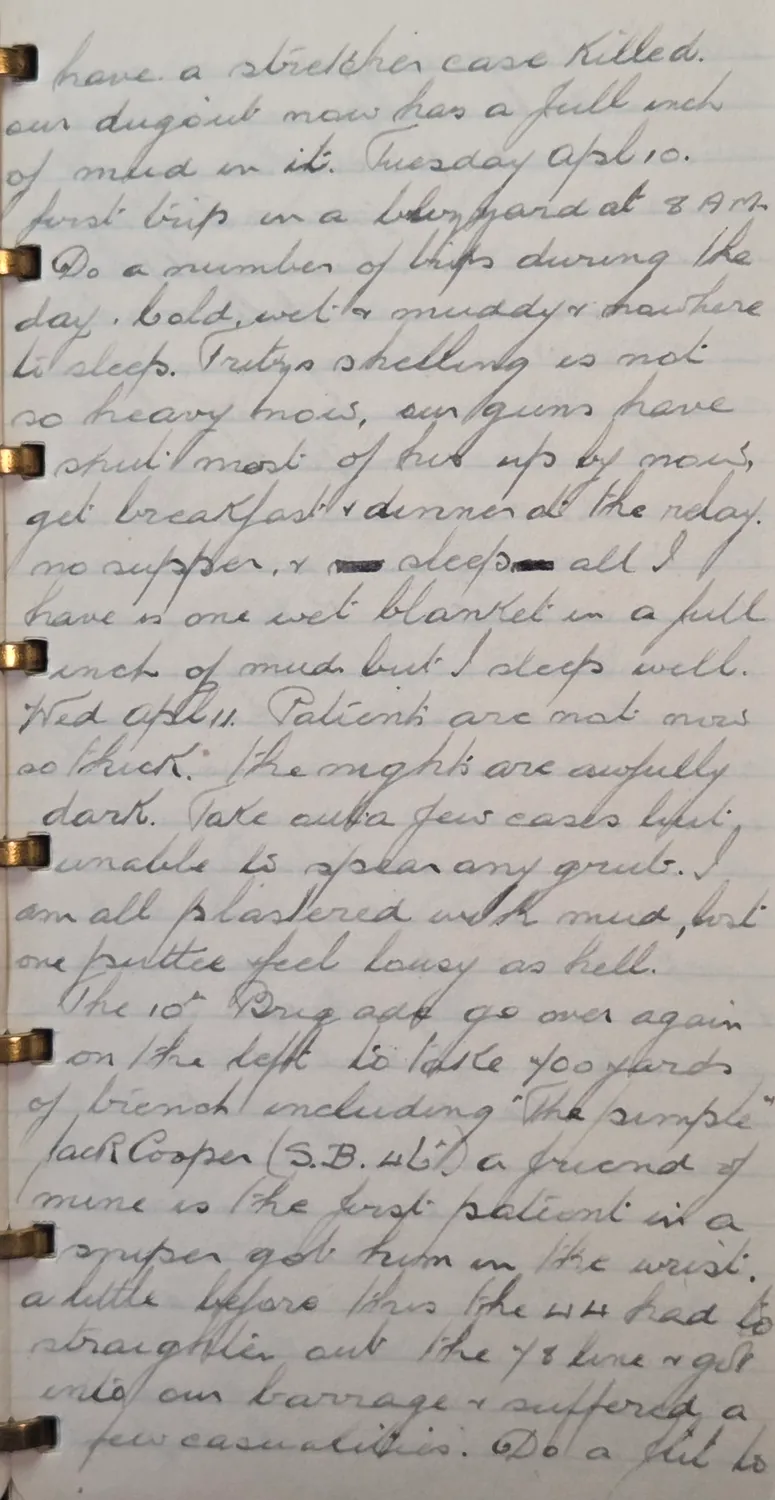 have a stretcher case killed.
our dugout now has a full inch
of mud in it. Tuesday Apl 10.
first trip in a blizzard at 8 AM.
Do a number of trips during the
day. Cold, wet & muddy & nowhere
to sleep. Fritzs shelling is not
so heavy now, our guns have
shut most of his up by now,
get breakfast & dinner at the relay.
no supper, & sleep all I
have is one wet blanket in a full
inch of mud but I sleep well.
Wed Apl 11. Patients are not now
so thick. The nights are awfully
dark. Take out a few cases but
unable to spear any grub. I
am all plastered with mud, lost
one puttee feel lousy as hell.
The 10th Brigade go over again
on the left to take 400 yards
of trench including "The pimple"
Jack Cooper (S.B. 46.) a friend of
mine is the first patient in a
sniper got him in the wrist.
a little before this the 44 had to
straighten out the 78 line & got
into our barrage & suffered a
few casualities. Do a to